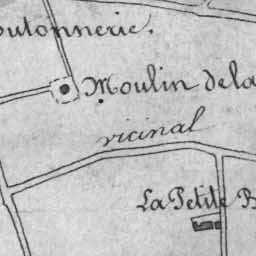 outonnerie.
Moulin de la
vicinal
La Petite B